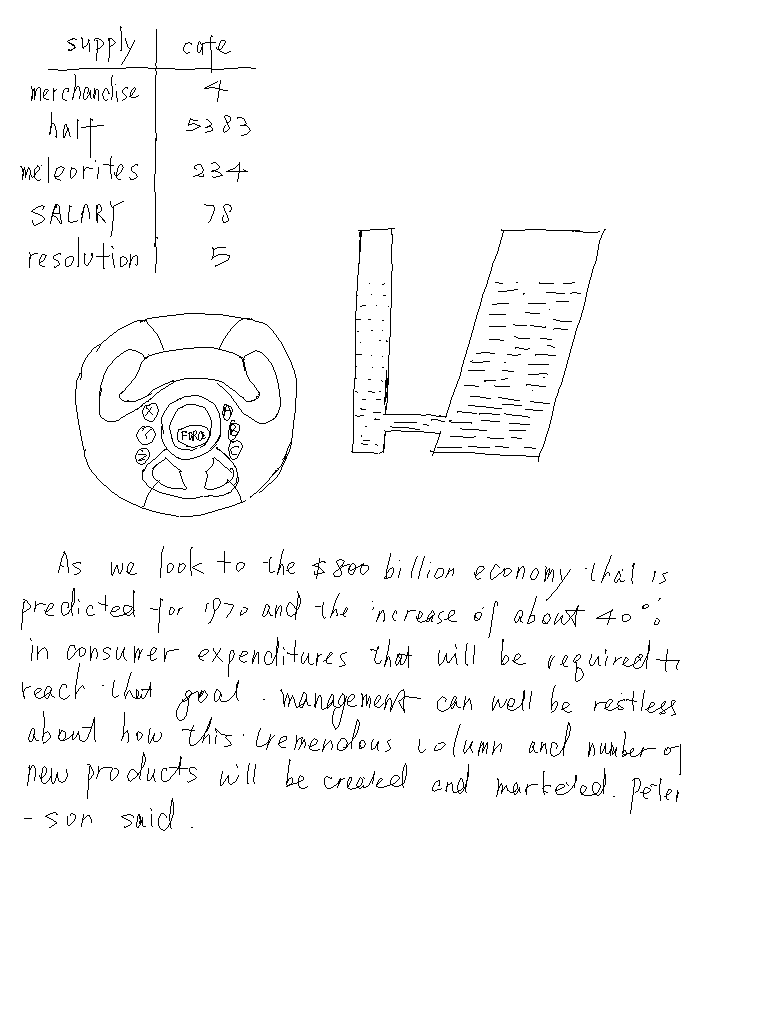 supply cafe
merchandise 4
half 5383
meteorites 234
SALARY 78
resolution 5
X A
Y B
FORCE
Z C
As we look to the $800 billion economy that is
predicted for 1970 and the increase of about 40%
in consumer expenditures that will be required to
reach that goal. management can well be restless
about how this tremendous volumn and number of
new products will be created and marketed. Peter
-son said.